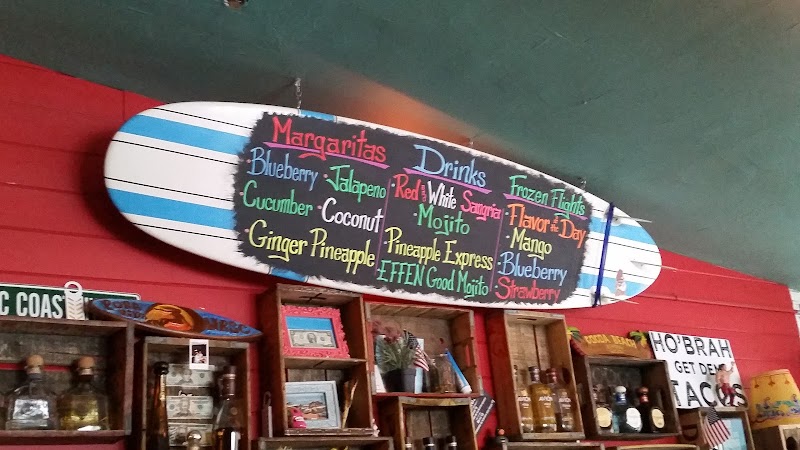 Margaritas
·Blueberry ·Jalapeno
Cucumber ·Coconut
·Ginger Pineapple
Drinks
·Red and White Sangria
·Mojito
·Pineapple Express
·EFFEN Good Mojito
Frozen Flights
·Flavor of the Day
·Mango
·Blueberry
·Strawberry
C COAST
COCOA BEACH
HO'BRAH
GET DEM
TACOS
AVION
AVION
AVION